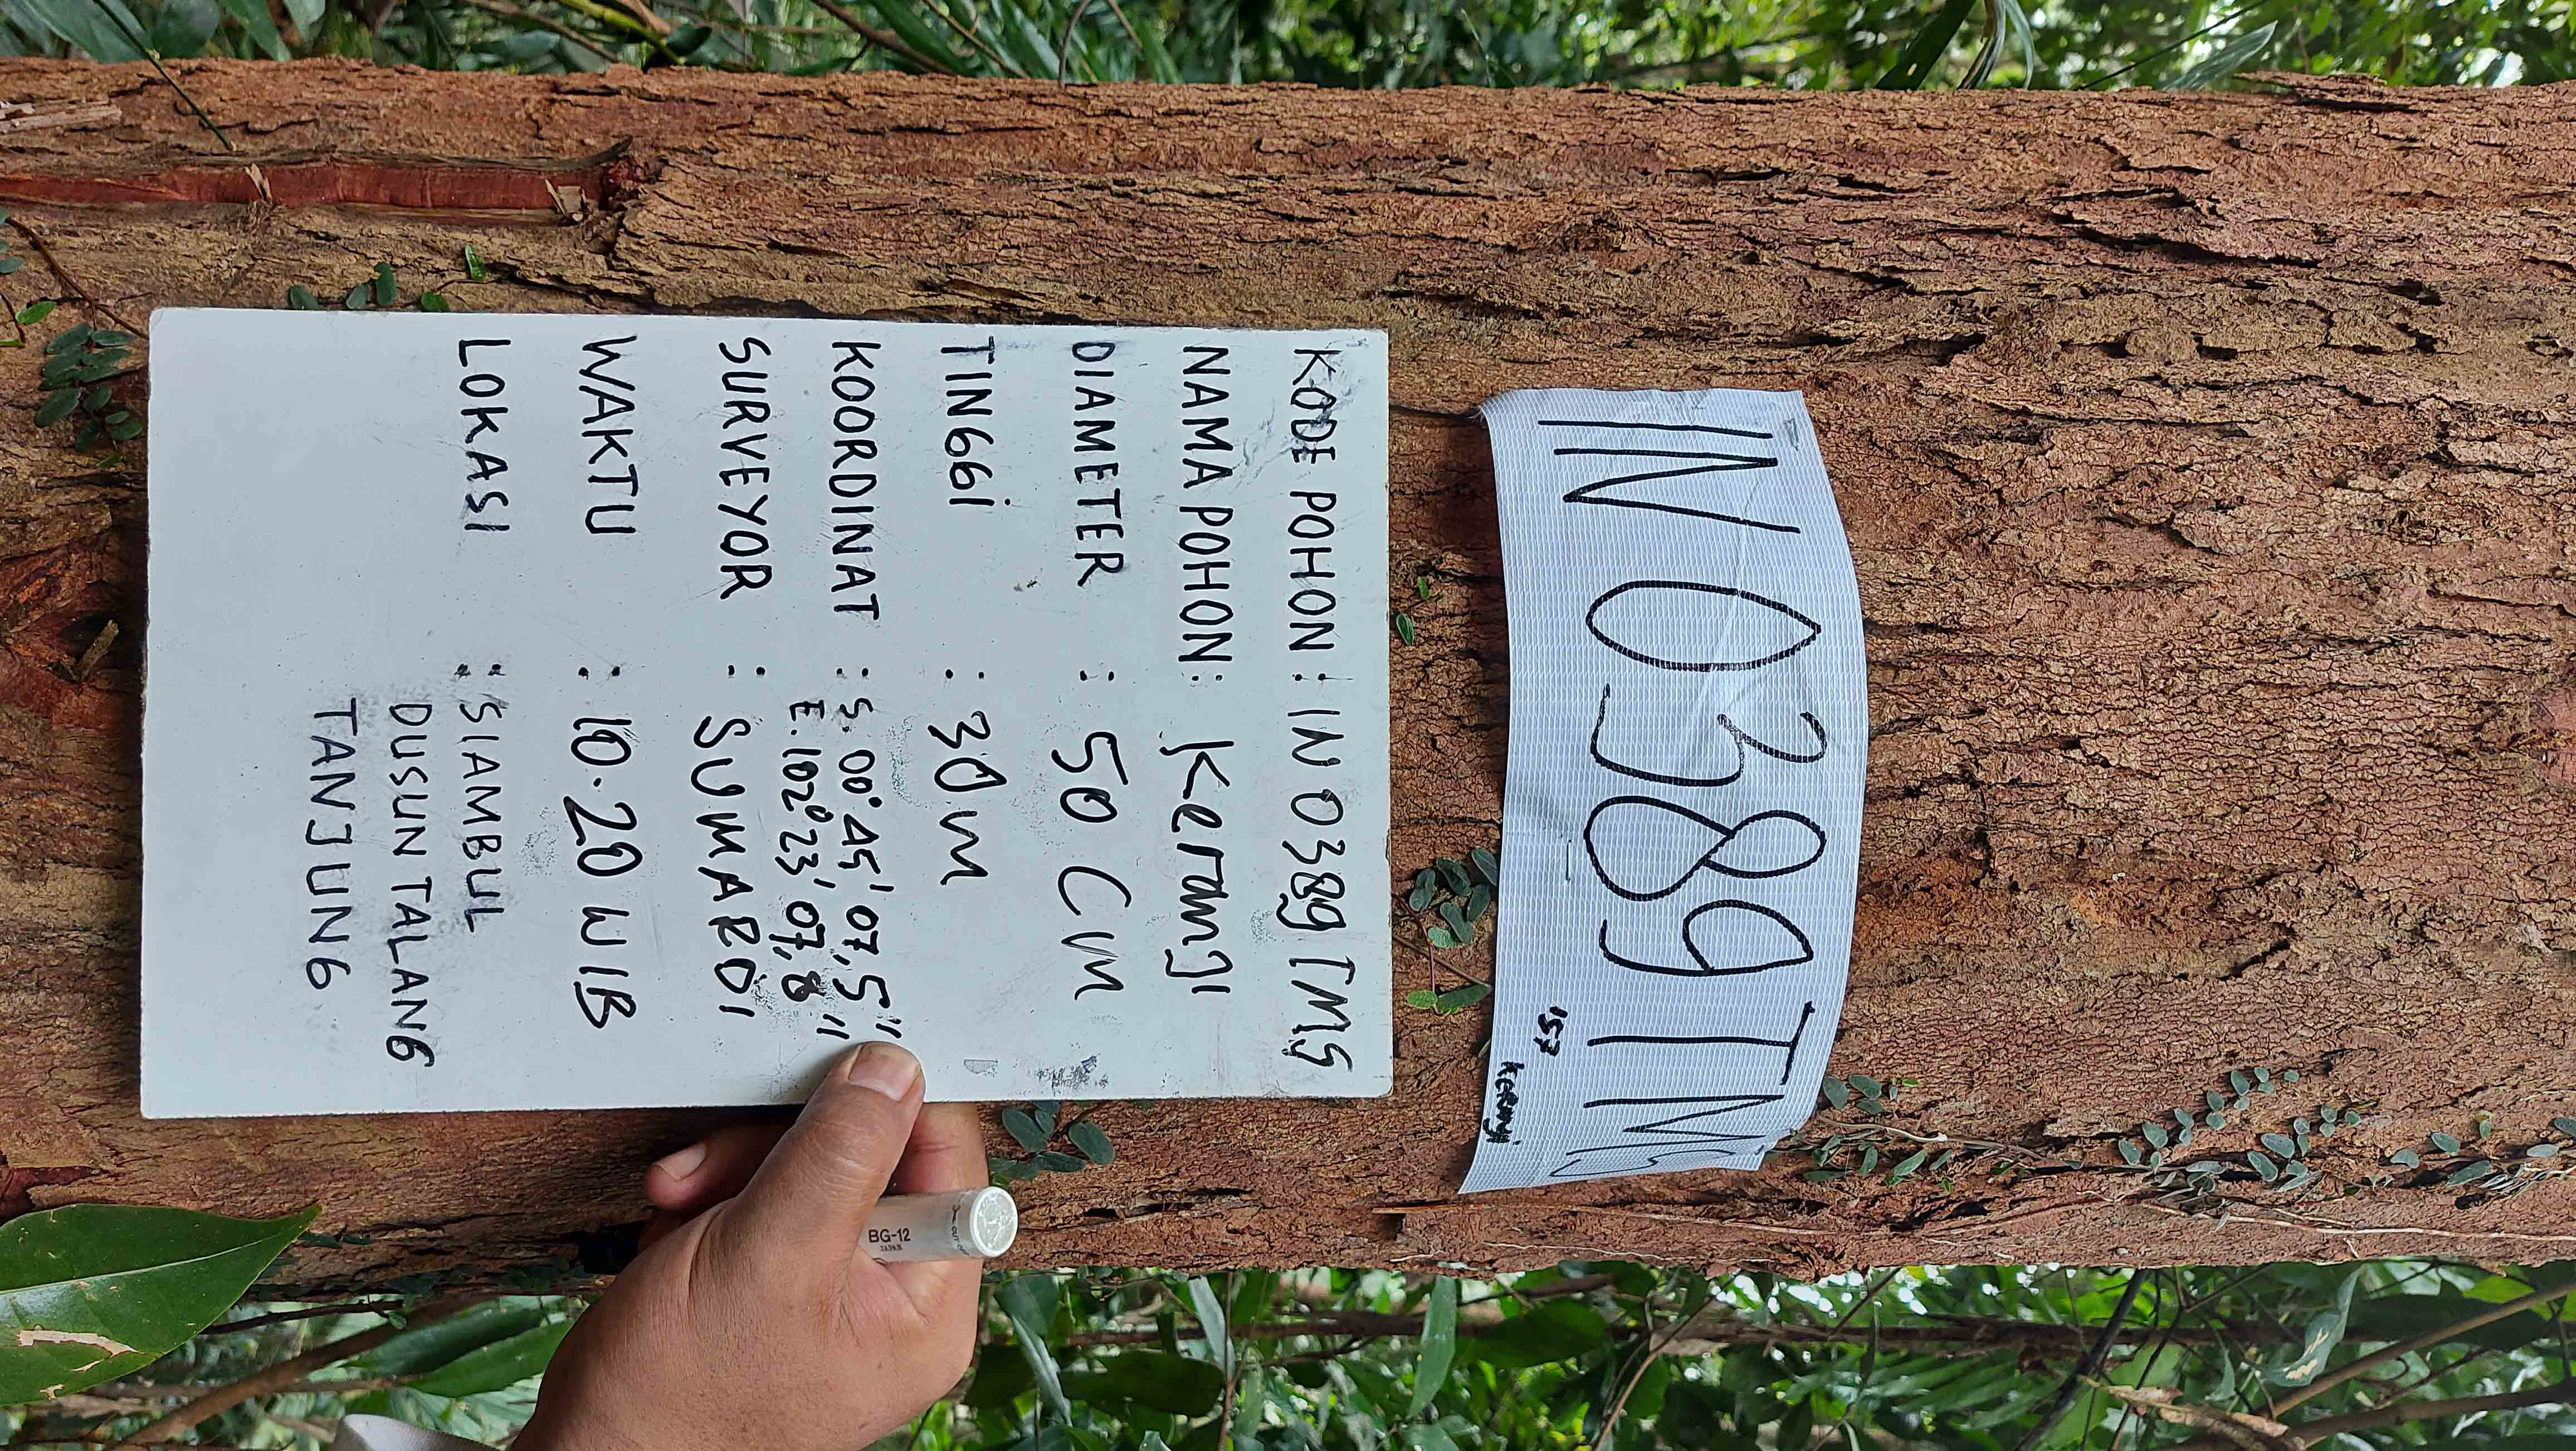 IN 0389 TMS
'57
Kerangi
KODE POHON : IN 0389 TMS
NAMA POHON: Kerangi
DIAMETER : 50 Cm
TINGGI : 30 m
KOORDINAT : S. 00° 45' 07,5"
E. 102° 23' 07,8"
SURVEYOR : SUMARDI
WAKTU : 10.20 WIB
LOKASI : SIAMBUL
DUSUN TALANG
TANJUNG
BG-12
JAPAN